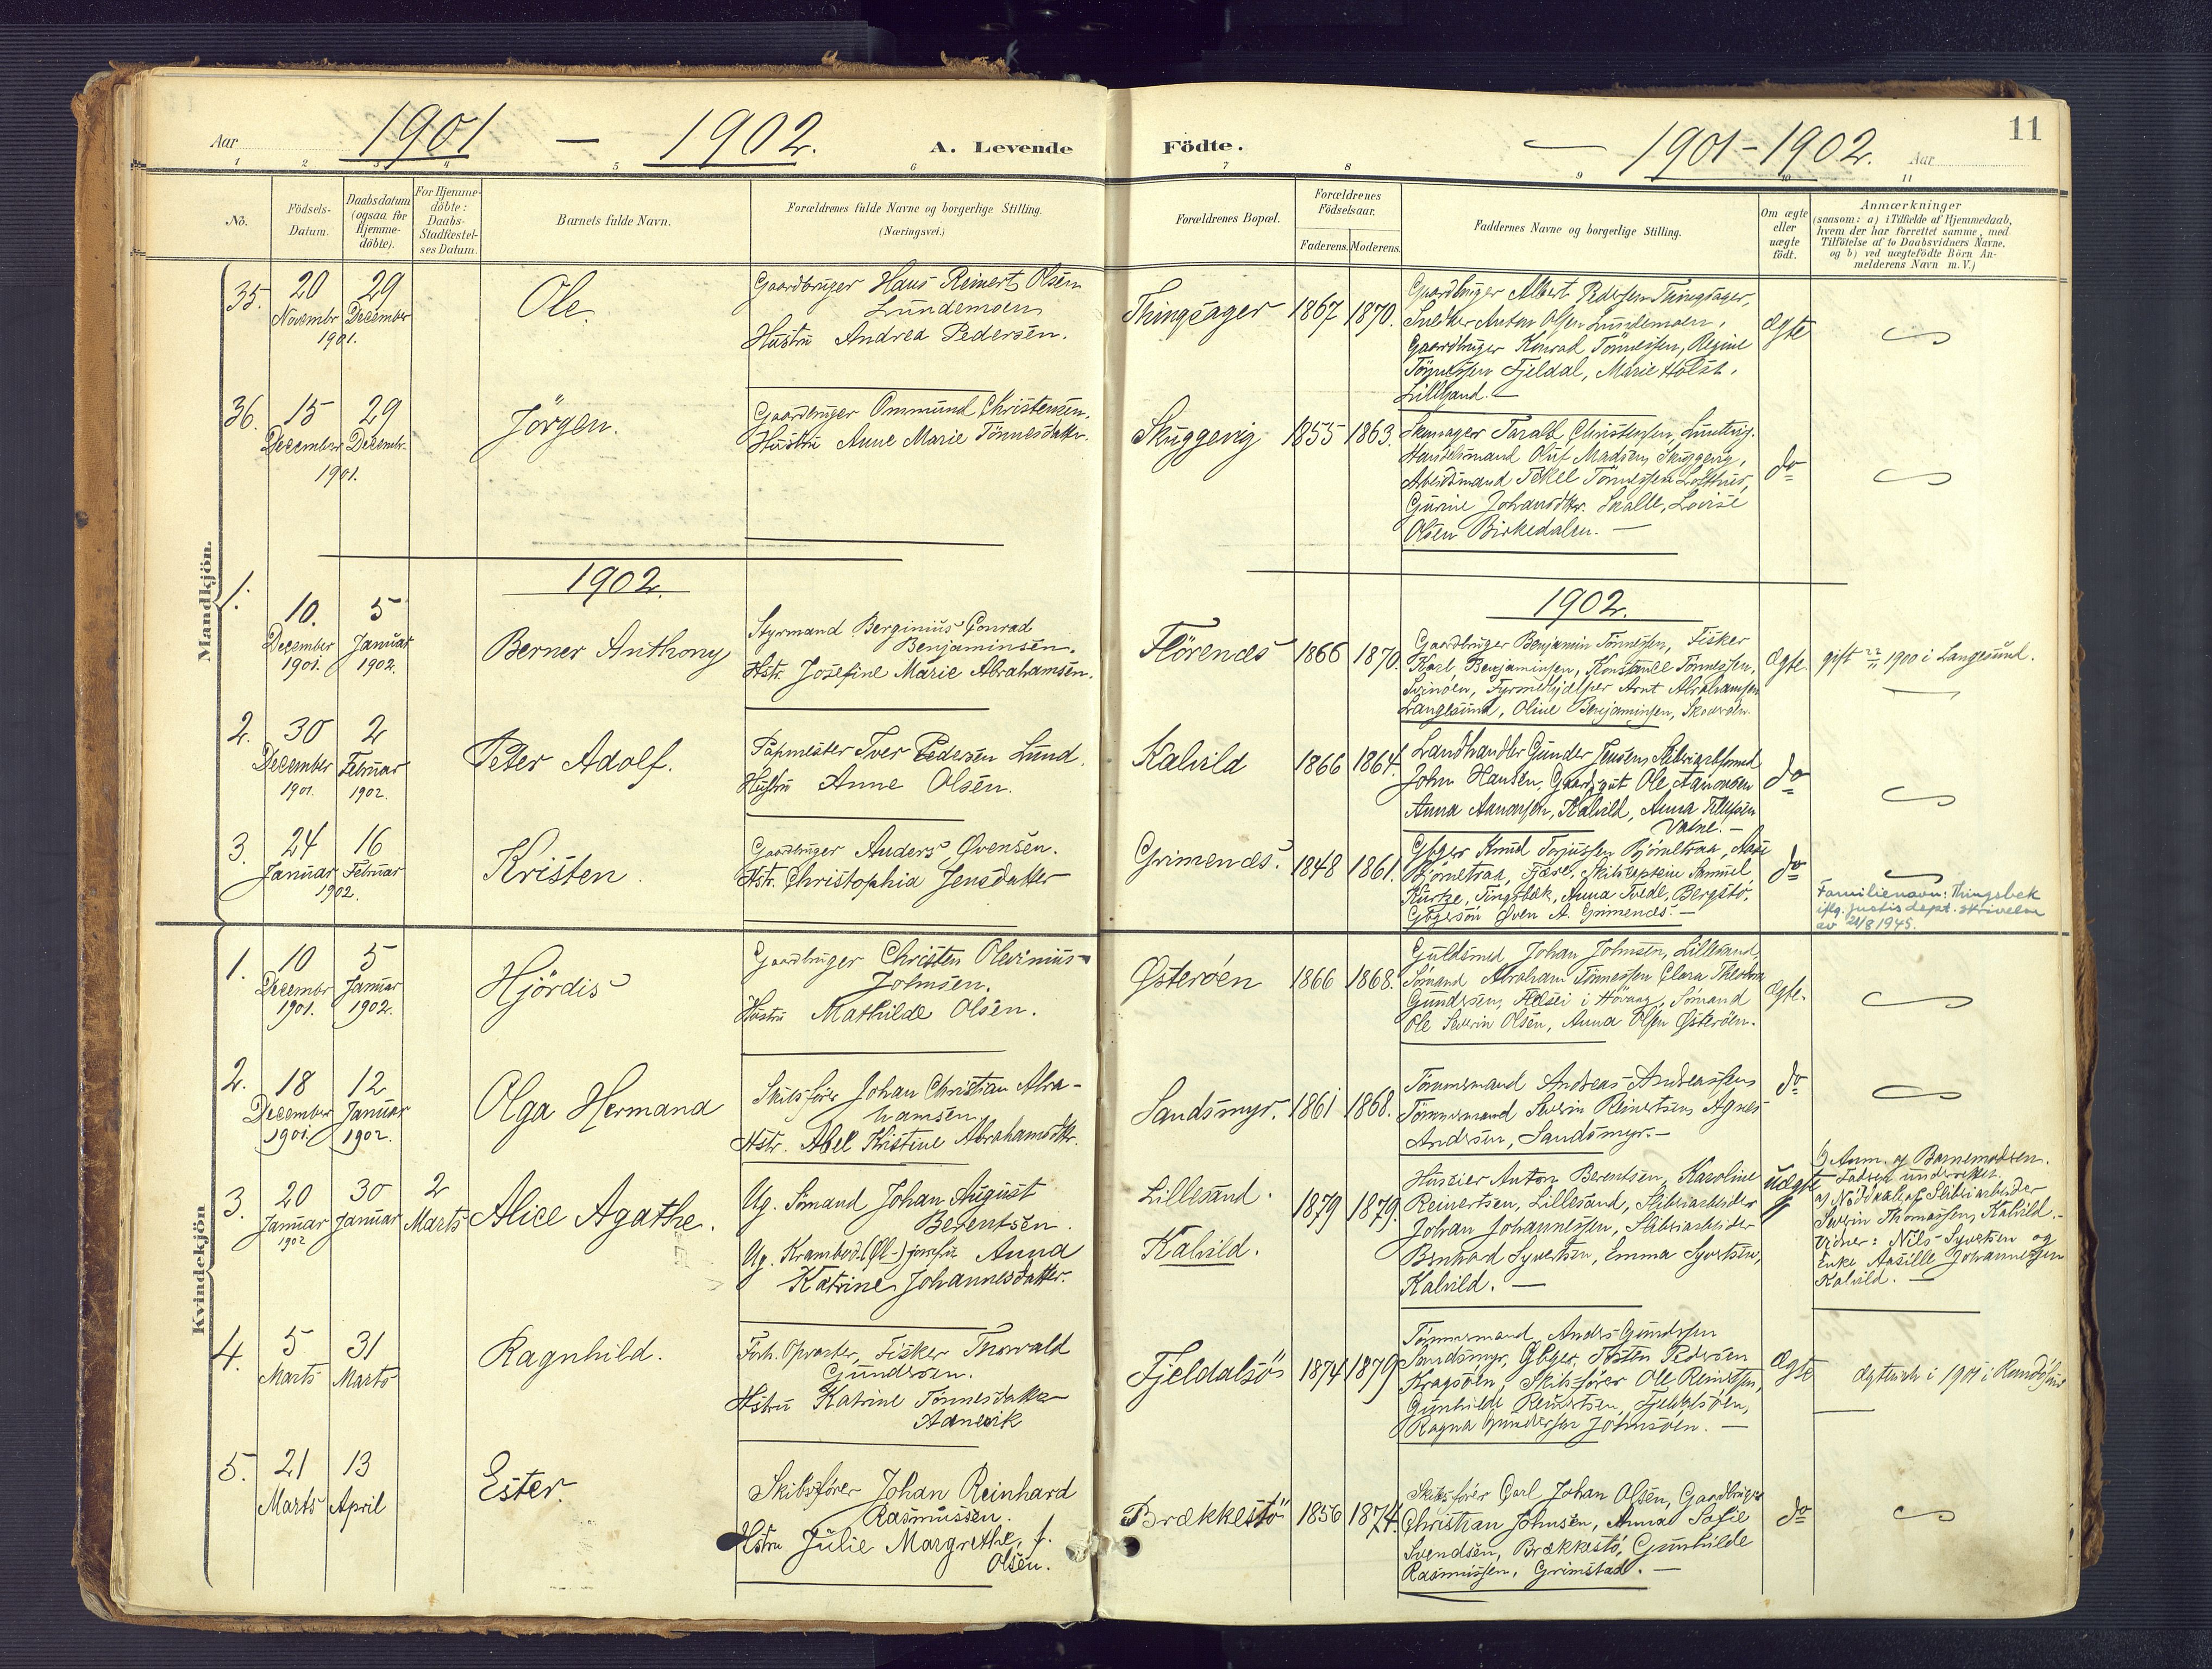 Aar 1901 — 1902. A. Levende Födte. — 1901-1902. Aar 11
1 2 3 4 5 6 7 8 9 10 11
Nö.
Födsels-
Datum.
Daabsdatum
(ogsaa for
Hjemme-
döbte).
For Hjemme-
döbte:
Daabs-
Stadfæstel-
ses Datum.
Barnets fulde Navn.
Forældrenes fulde Navne og borgerlige Stilling.
(Næringsvei.)
Forældrenes Bopæl.
Forældrenes
Födselsaar.
Faderens. Moderens.
Faddernes Navne og borgerlige Stilling.
Om ægte
eller
uægte
födt.
Anmærkninger
(saasom: a) i Tilfælde af Hjemmedaab,
hvem der har forrettet samme, med
Tilföielse af to Daabsvidners Navne,
og b) ved uægtefödte Börn An-
melderens Navn m.V.)
Mandkjön.
35.
20
Novembr
29
December
1901.
Ole
Gaardbruger Hans Reinert Olsen
Lundemoen
Hustru Andrea Pedersen.
Thingsager
1867 1870.
Gaardbruger Albert Pedersen Thingsager,
Anton Olsen Lundemoen,
Gaardbruger Konrad Tönnessen, Regine
Tönnessen Fjeldal, Marie Holst,
Lillesand.
Ægte
36.
15
December
29
Decembr.
1901.
Jörgen.
Gaardbruger Ommund Christensen.
Hustru Anne Marie Tönnesdatter.
Skuggevig
1855 1863.
Skomager Taralb Christensen,
Handelsmand Oluf Madsen Skuggevig,
Arbeidsmand Tönnessen Lofthus,
Gurine Johansdtr. Skalle, Lovise
Olsen Birkedalen. —
do
1902.
1902.
1.
10.
December
1901.
5
Januar
1902.
Berner Anthony
Styrmand Berginius Conrad
Benjaminsen.
Hstr. Josefine Marie Abrahamsen.
Flörenæs
1866 1870.
Gaardbruger Benjamin Tönnessen, Fisker
Karl Benjaminsen, Konstanse Tönnessen,
Svinöen, Arnt Abrahamsen
Langesund, Oline Benjaminsen,
Ægte.
gift 22/11 1900 i Langesund.
2.
30
December
1901.
2
Februar
1902.
Peter Adolf.
Papmester Iver Pedersen Lund.
Hustru Anne Olsen.
Kalvild
1866 1864.
Landhandler Gunder Jensen,
John Hansen, Gaardgut Ole Aanonsen
Anna Aanonsen, Kalvild, Anna Tellefsen
Vatne. —
do
3.
24
Januar
16
Februar
1902.
Kristen
Gaardbruger Anders Øvensen.
Hstr. Christophia Jensdatter
Grimenæs.
1848 1861.
Gbger Knud Torjussen Björnetraa,
Björnetraa, Fjære, Skibskaptein Samuel
Kurtze, Tingsbæk, Anna Tvede, Bergstö,
Gbgersön Øven A. Grimenæs. —
do
Familienavn: Thingsbek
iflg. justisdept. skrivelse
av 21/8 1945.
Kvindekjön
1.
10
Decembr
1901.
5
Januar
1902.
Hjördis
Gaardbruger Christen Olevinius
Johnsen.
Hustru Mathilde Olsen.
Østeröen
1866 1868.
Guldsmed Johan Johnsen, Lillesand,
Sömand Abraham Tönnessen, Clara
Gundersen, i Hövaag, Sömand
Ole Severin Olsen, Anna Olsen Østeröen.
Ægte.
2.
18
December
1901.
12
Januar
1902.
Olga Hermana
Skibsförer Johan Christian Abra-
hamsen.
Hstr. Abel Kristine Abrahamsdtr.
Sandsmyr.
1861 1868.
Tömmermand Andreas Andreassen,
Tömmermand Severin Reinertsen, Agnes
Andersen, Sandsmyr. —
do
3.
20
Januar
1902
30
Januar
2
Marts
Alice Agathe.
Ug. Sömand Johan August
Berentsen.
Ug. Krambod.(Øl-) jomfru Anna
Katrine Johannesdatter.
Lillesand.
Kalvild.
1879 1879.
Anton Berentsen, Karoline
Reinertsen, Lillesand, Slibriarbeider
Johan Johannessen, Slibriarbeider
Bernhard Syvertsen, Emma Syvertsen,
Kalvild. —
Uægte
b) Anm. af Barnemodren.
Fadren underrettet.
a) Nöddöbt af Slibriarbeider
Severin Thomassen, Kalvild. —
Vidner: Nils Syvertsen og
Enke Johannessen
Kalvild. —
4.
5
Marts
31
Marts
Ragnhild.
Forh. Opvarter, Fisker Thorvald
Gundersen.
Hstru Katrine Tönnesdatter
Aanevik
Fjeldalsö
1874 1879
Tömmermand Anders Gundersen
Sandsmyr, Gbger. Tosten Pedersen
Kragsöen, Skibsförer Ole Reinertsen,
Gunhilde Reinertsen, Fjeldalsöen,
Ragna Gundersen Johnsöen. —
Ægte
Ægteviet i 1901 i
5.
21
Marts
13
April
Ester.
Skibsförer Johan Reinhard
Rasmussen.
Hstru Julie Margrethe, f.
Olsen.
Brækkestö
1856 1874.
Skibsförer Carl Johan Olsen, Gaardbruger
Christian Johnsen, Anna Sofie
Svendsen, Brækkestö, Gunhilde
Rasmussen, Grimstad. —
do